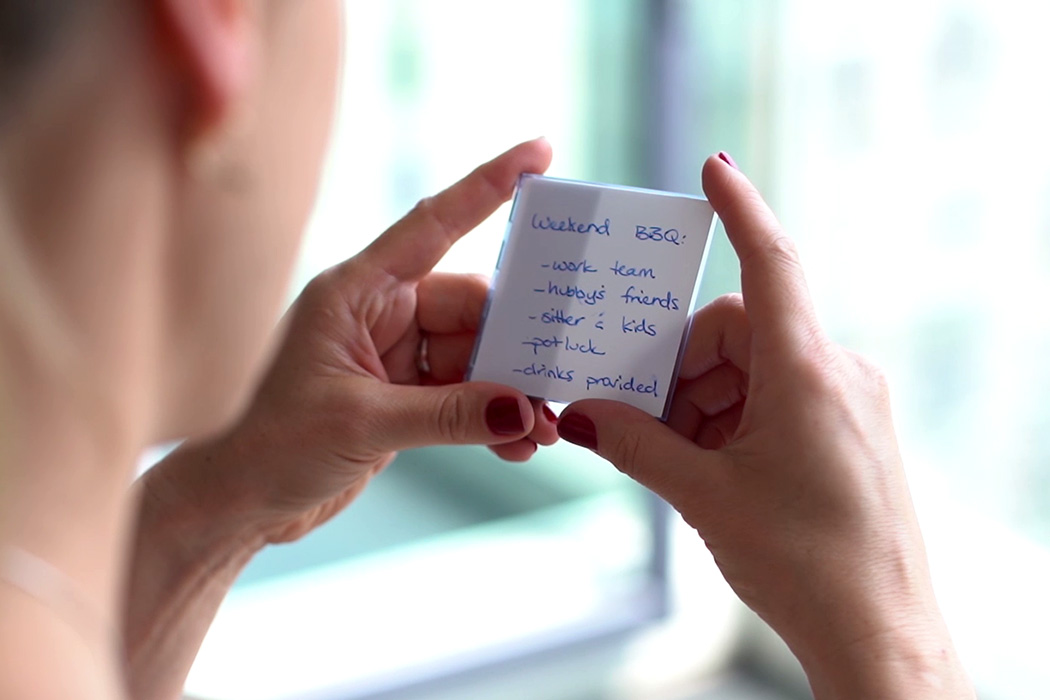 Weekend BBQ:
-work team
-hubby's friends
-sitter & kids
-potluck
-drinks provided